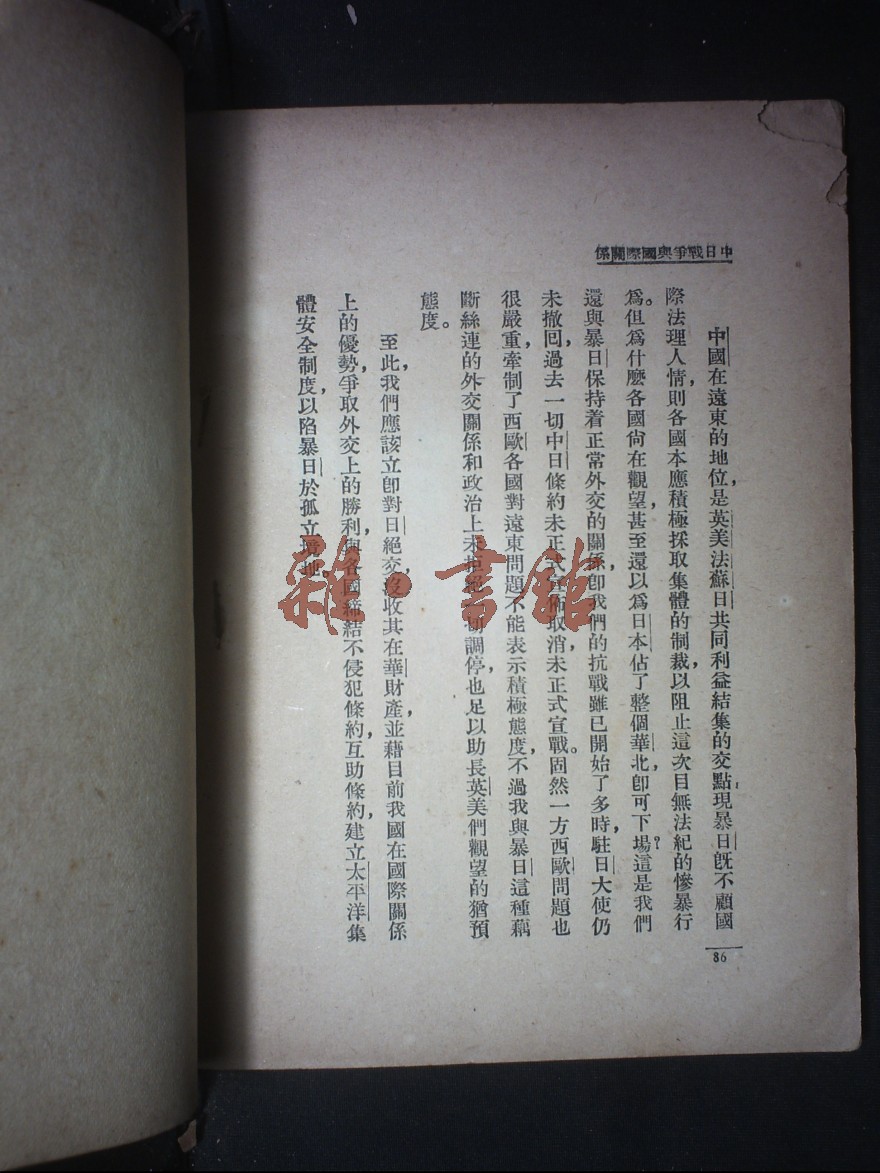 中日戰爭與國際關係
中國在遠東的地位，是英美法蘇日共同利益結集的交點，現暴日旣不顧國
際法理人情，則各國本應積極採取集體的制裁，以阻止這次目無法紀的慘暴行
爲。但爲什麼各國尙在觀望，甚至還以爲日本佔了整個華北，卽可下場？這是我們
還與暴日保持着正常外交的關係，卽我們的抗戰雖已開始了多時，駐日大使仍
未撤回，過去一切中日條約未正式宣佈取消，未正式宣戰。固然一方西歐問題也
很嚴重，牽制了西歐各國對遠東問題不能表示積極態度，不過我與暴日這種藕
斷絲連的外交關係和政治上未拒絕一切調停，也足以助長英美們觀望的猶預
態度。
至此，我們應該立卽對日絕交，沒收其在華財產，並藉目前我國在國際關係
上的優勢，爭取外交上的勝利，與各國締結不侵犯條約，互助條約，建立太平洋集
體安全制度，以陷暴日於孤立境地。
86
雜·書館